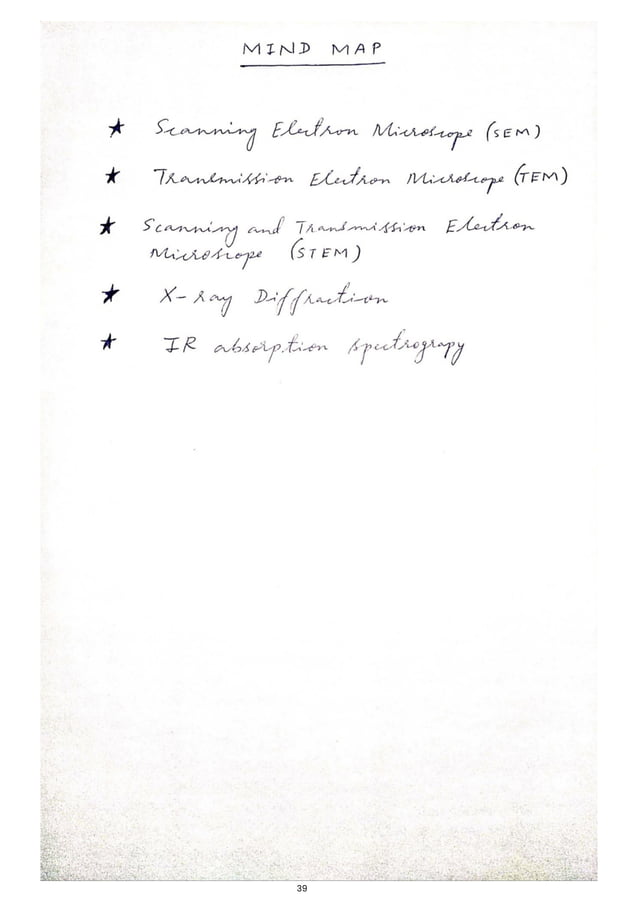 MIND MAP
★ Scanning Electron Microscope (SEM)
★ Transmission Electron Microscope (TEM)
★ Scanning and Transmission Electron
Microscope (STEM)
★ X-ray Diffraction
★ IR absorption spectrograpy
39